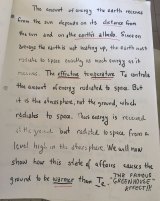 The amount of energy the earth receives
from the sun depends on its distance from
the sun and on the earth's albedo. Since on
average the earth is not heating up, the earth must
radiate to space exactly as much energy as it
receives. The effective temperature Te controls
the amount of energy radiated to space. But
it is the atmosphere, not the ground, which
radiates to space. Thus energy is received
at the ground but radiated to space from a
level high in the atmosphere. We will now
show how this state of affairs causes the
ground to be warmer than Te.
THE FAMOUS
"GREENHOUSE"
EFFECT!!!